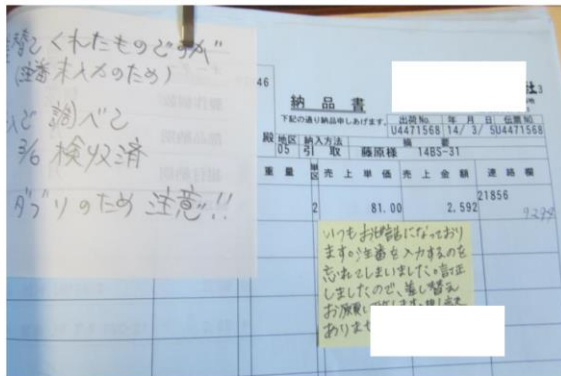 替えてくれたものですが
(注番未入力のため)
調べて
3/6 検収済
ダブりのため 注意!!
46
納品書
下記の通り納品申しあげます。
出荷No. 年 月 日 伝票NO.
U4471568 14/ 3/ 5 U4471568
殿 地区 納入方法 摘 要
05 引 取 藤原様 14BS-31
重 量 単区 売 上 単 価 売 上 金 額 連 絡 欄
21856
2 81.00 2.592
いつもお世話になっており
ます。注番を入力するのを
忘れてしまいました。訂正
しましたので、差し替え
お願い
ありませ